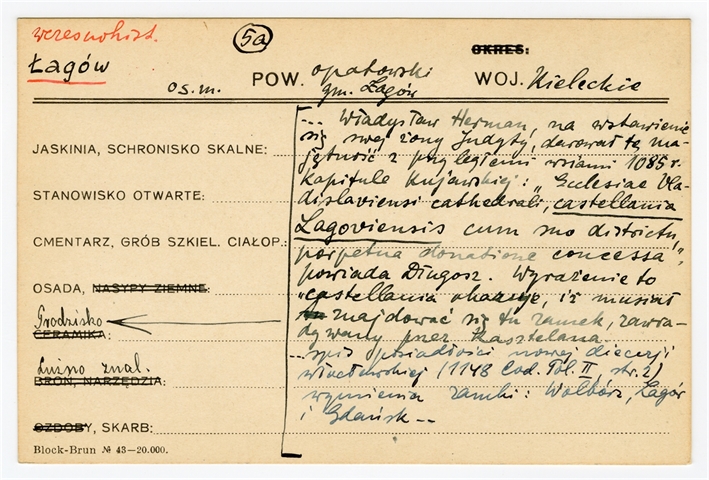 wczesnohist.
5a
OKRES:
Łagów
os.m.
POW. opatowski
gm. Łagów
WOJ. Kieleckie
JASKINIA, SCHRONISKO SKALNE:
STANOWISKO OTWARTE:
CMENTARZ, GRÓB SZKIEL. CIAŁOP.:
OSADA, NASYPY ZIEMNE:
Grodzisko
CERAMIKA:
Luźno znal.
BROŃ, NARZĘDZIA:
OZDOBY, SKARB:
Block-Brun № 43—20.000.
... Władysław Herman, na wstawienie
się swej żony Judyty, darował tę ma-
jętność z przyległemi wsiami 1085 r.
Kapitule Kujawskiej: "Ecclesiae Vla-
dislaviensi cathedrali, castellania
Lagoviensis cum suo districtu,
perpetua donatione concessa",
powiada Długosz. Wyrażenie to
"castellania okazuje, iż musiał
tu znajdować się tu zamek, zawia-
dywany przez Kasztelana.
... spis posiadłości nowej diecezji
włocławskiej (1148 Cod. Pol. II, str. 2)
wymienia zamki: Wolbórz, Łagów
i Gdańsk --